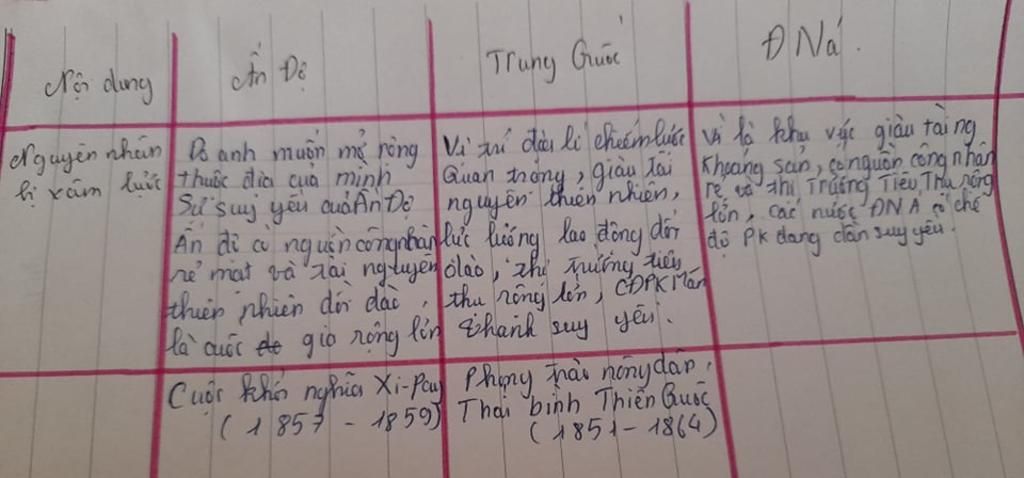 Nội dung
Ấn Độ
Trung Quốc
ĐNá.
Nguyên nhân
bị xâm lược
Do anh muốn mở rộng
thuộc địa của mình
Sự suy yếu của Ấn Độ
Ấn độ có nguồn công nhân
rẻ mạt và tài nguyên
thiên nhiên dồi dào,
là quốc gia rộng lớn
Vị trí địa lí chiến lược
Quan trọng, giàu tài
nguyên thiên nhiên,
lực lượng lao động dồi
dào, thị trường tiêu
thụ rộng lớn, CĐPK Mãn
Thanh suy yếu.
Vì là khu vực giàu tài ng
Khoáng sản, có nguồn công nhân
rẻ và thị Trường Tiêu Thụ rộng
lớn, các nước ĐNA có chế
độ PK đang dần suy yếu.
Cuộc khởi nghĩa Xi-Pay
(1857 - 1859)
Phong trào nông dân
Thái bình Thiên Quốc
(1851 - 1864)